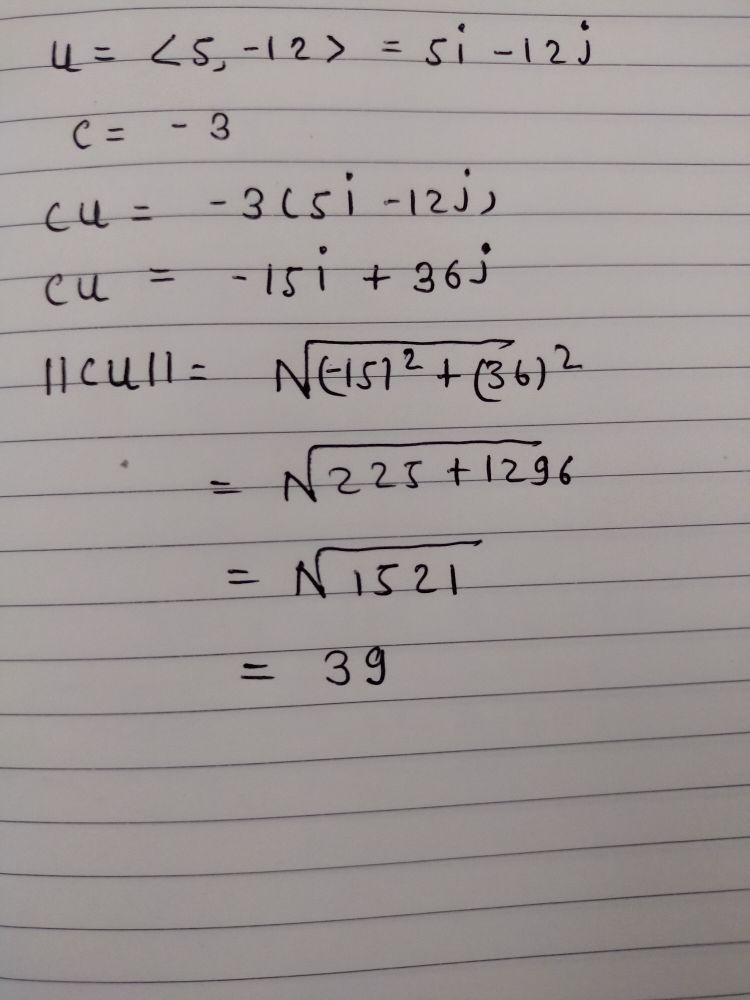 u = <5, -12> = 5i - 12j
c = - 3
cu = -3(5i - 12j)
cu = -15i + 36j
||cu|| = √(-15)² + (36)²
= √225 + 1296
= √1521
= 39